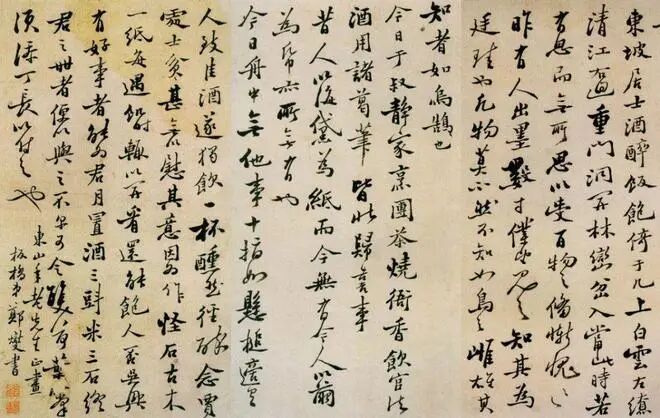 東坡居士酒醉飯飽倚于几上白雲左繚
清江右洄重門洞開林巒岔入當此時若
有思而無所思以受百物之備慚愧〻
昨有人出墨數寸僕望見知其為
廷珪也凡物莫不然不知如烏之雌雄其
知者如烏鵲也
今日于叔靜家烹團茶燒衙香飲官法
酒用諸葛筆皆北歸喜事
昔人以海苔為紙而今無有今人以竹
為帋亦所無有也
今日舟中無他事十指如懸槌適有
人致佳酒遂獨飲一杯醺然徑醉念賈
處士貧甚無以慰其意因為作怪石古木
一紙每遇飢時輒以開看還能飽人否若吳興
有好事者能為君月置酒三斗米三石終
君之世者便以與之不爾可令雙荷葉掌
須添丁長以付之也
東山老先生正
板橋弟鄭燮書